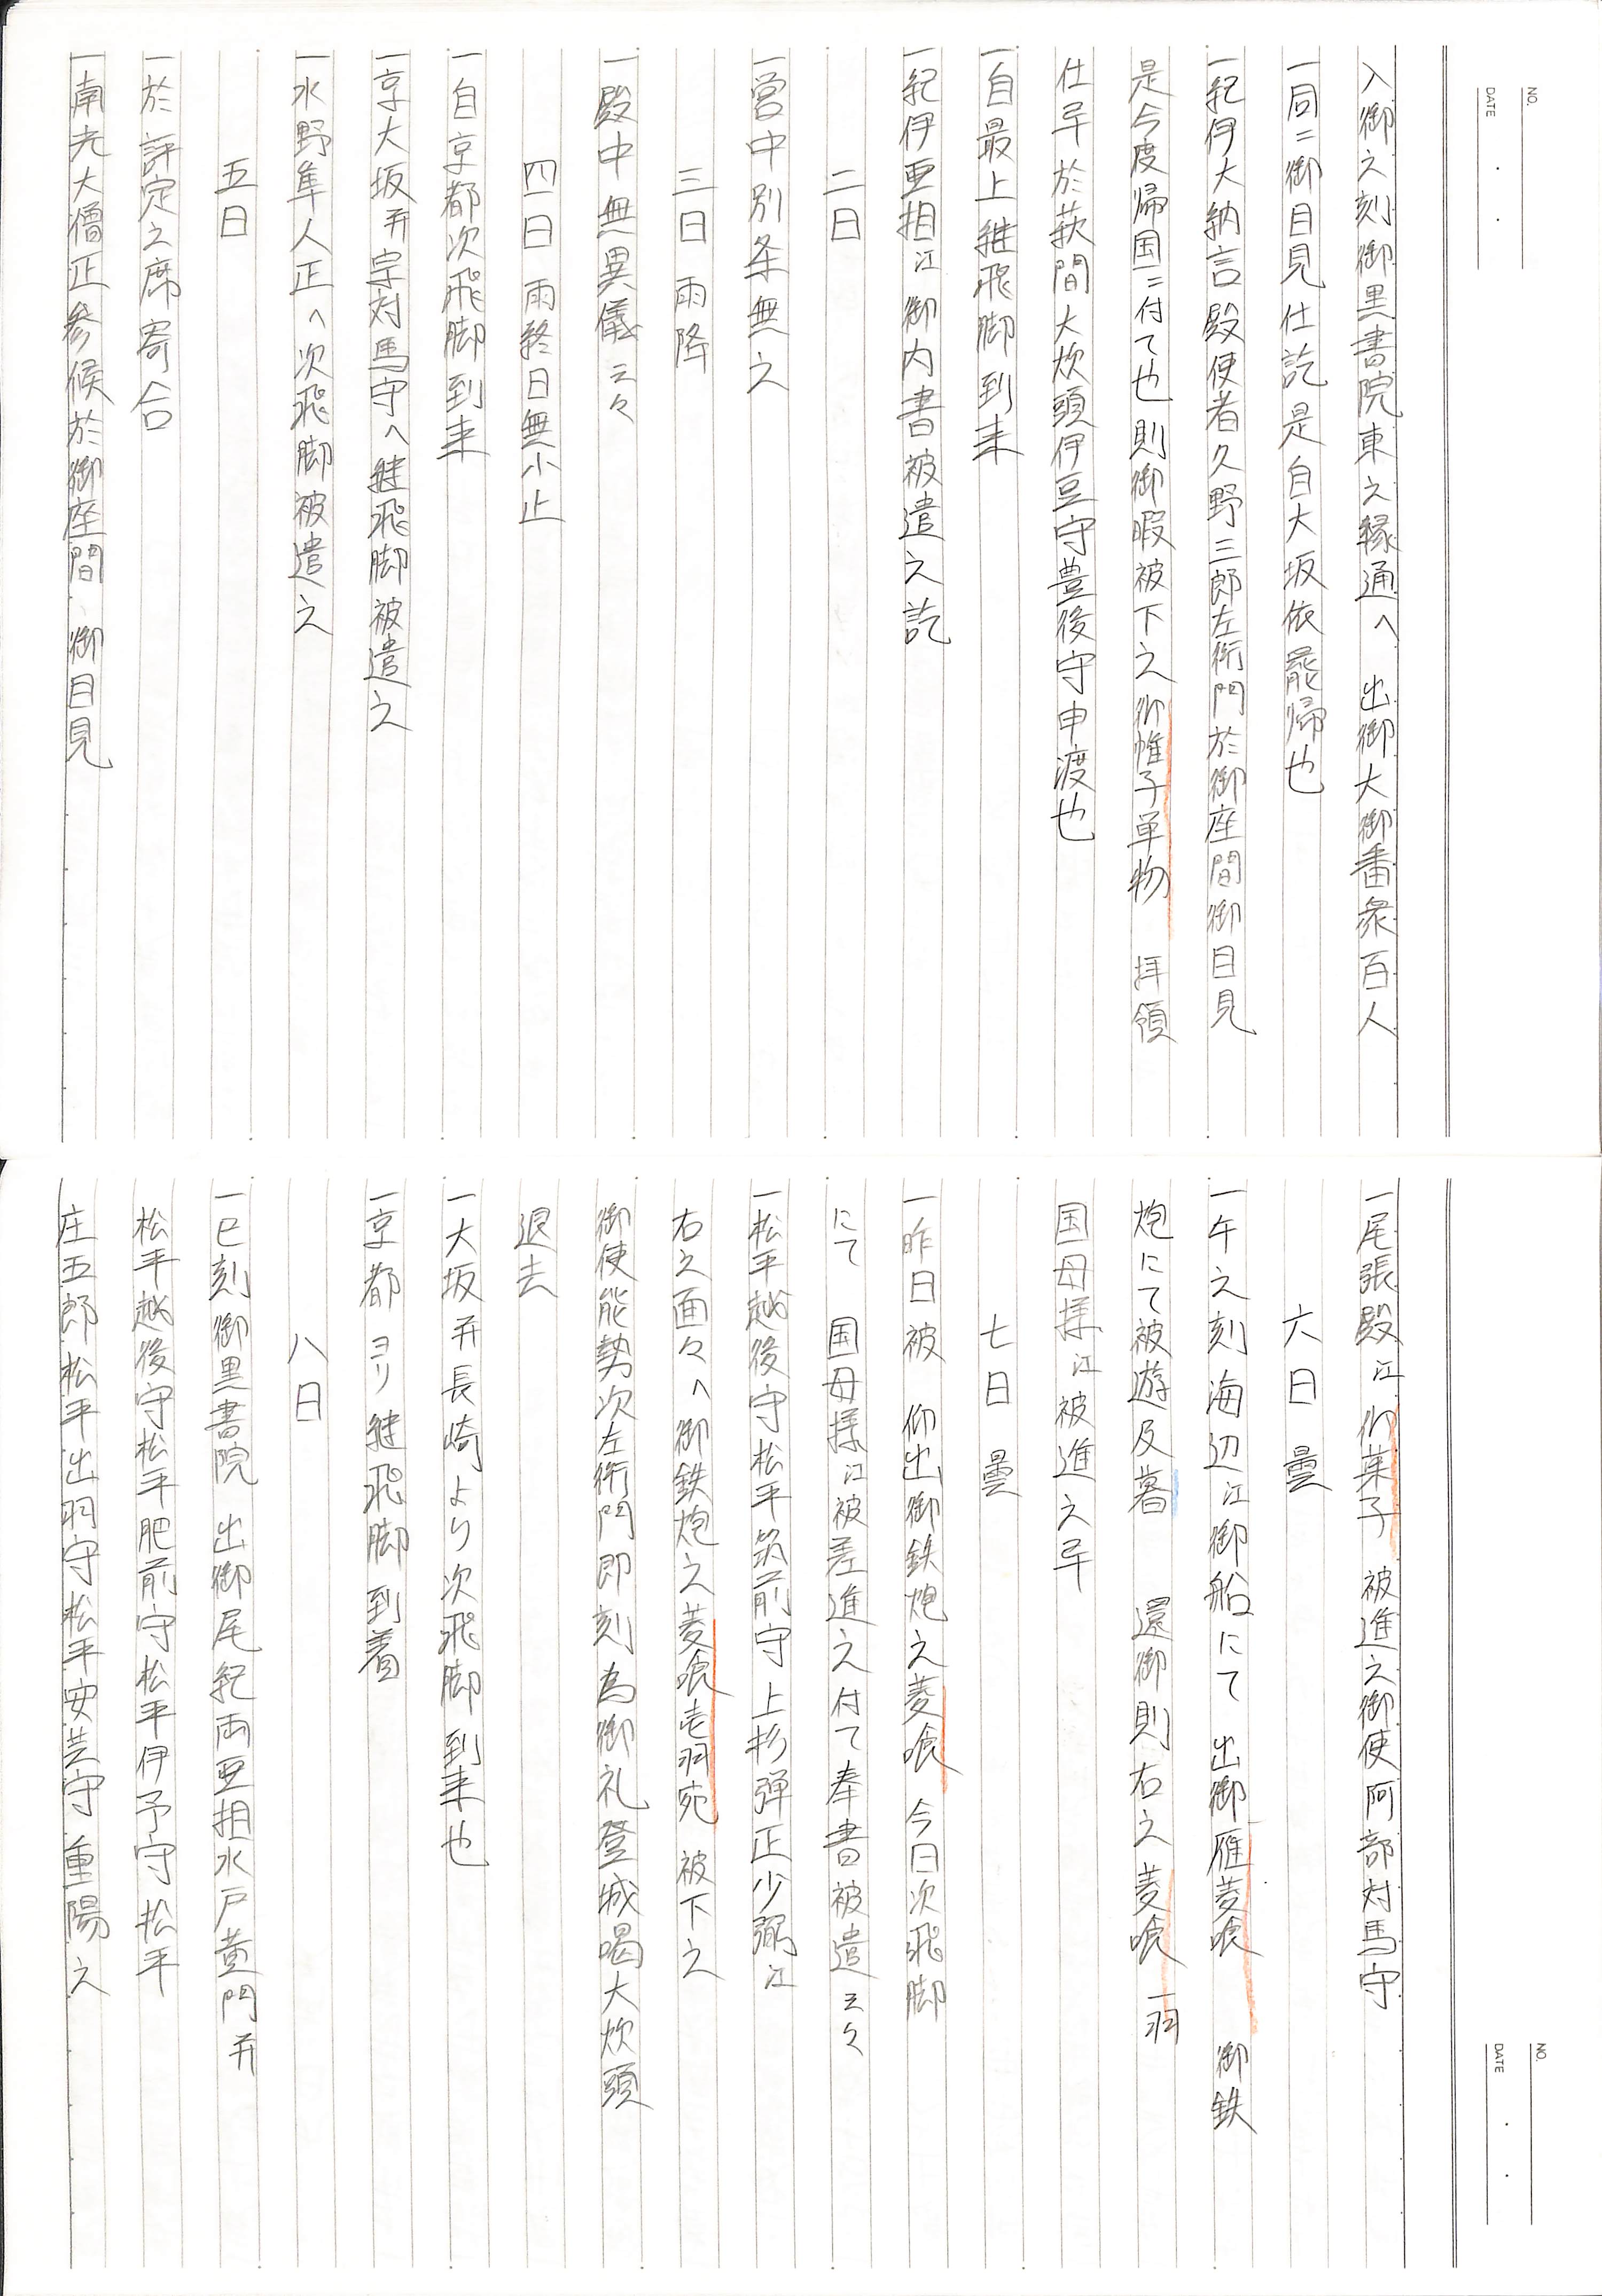 NO.
DATE
入御之刻御黒書院東之縁通へ 出御大御番衆百人
一同ニ御目見仕訖是自大坂依罷帰也
一紀伊大納言殿使者久野三郎左衛門於御座間御目見
是今度帰国ニ付て也則御暇被下之御帷子単物 拝領
仕畢於萩間大炊頭伊豆守豊後守申渡也
一自最上継飛脚到来
一紀伊亜相江御内書被遣之訖
二日
一営中別条無之
三日 雨降
一殿中無異儀云々
四日 雨終日無小止
一自京都次飛脚到来
一京大坂并宗対馬守へ継飛脚被遣之
一水野隼人正へ次飛脚被遣之
五日
一於評定之席寄合
一南光大僧正参候於御座間 御目見
NO.
DATE
一尾張殿江御菓子 被進之御使阿部対馬守
六日 曇
一午之刻海辺江御船にて 出御雁菱喰 御鉄
炮にて被遊及暮 還御則右之菱喰 一羽
国母様江被進之畢
七日 曇
一昨日被 仰出御鉄炮之菱喰 今日次飛脚
にて 国母様江被差進之付て奉書被遣云々
一松平越後守松平筑前守上杉弾正少弼江
右之面々へ御鉄炮之菱喰壱羽宛 被下之
御使能勢次左衛門即刻為御礼登城喝大炊頭
退去
一大坂并長崎より次飛脚到来也
一京都ヨリ継飛脚到着
八日
一巳刻御黒書院 出御尾紀両亜相水戸黄門并
松平越後守松平肥前守松平伊予守松平
庄五郎松平出羽守松平安芸守重陽之